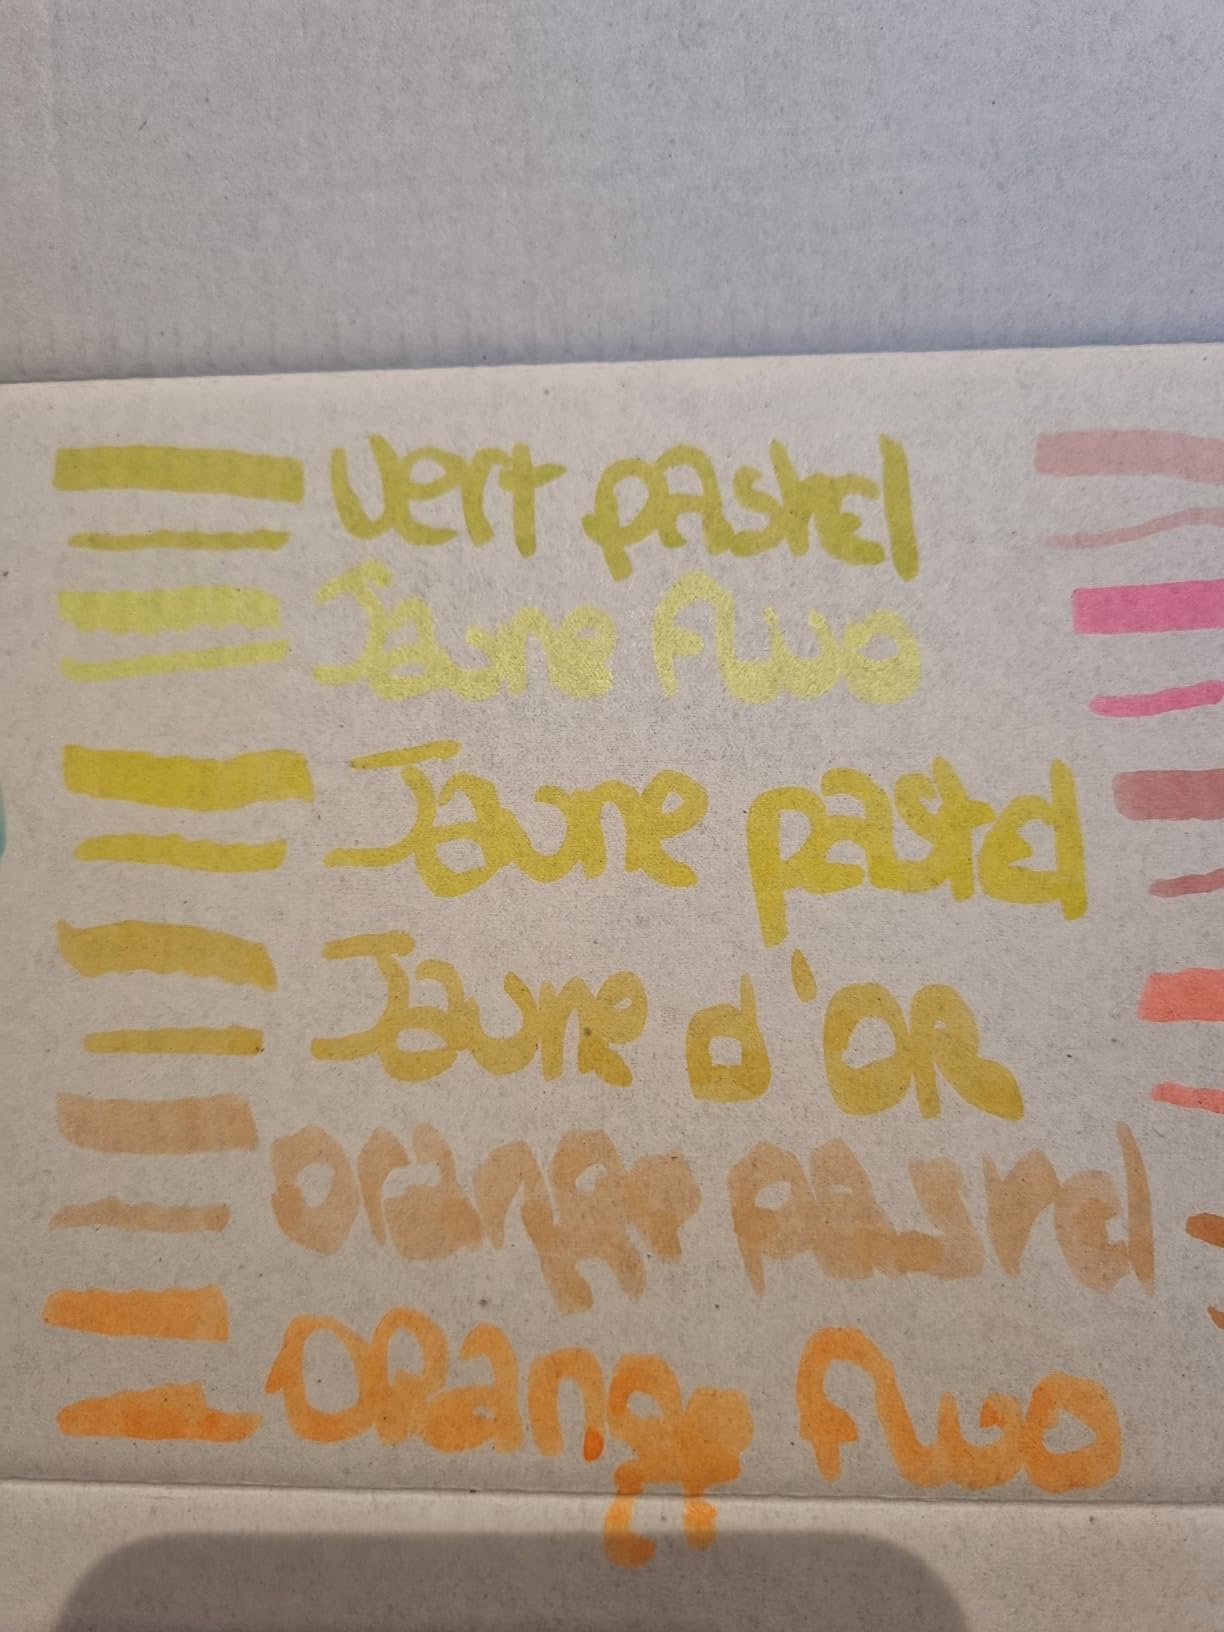 vert pastel
Jaune fluo
Jaune pastel
Jaune d'OR
orange pastel
ORange fluo